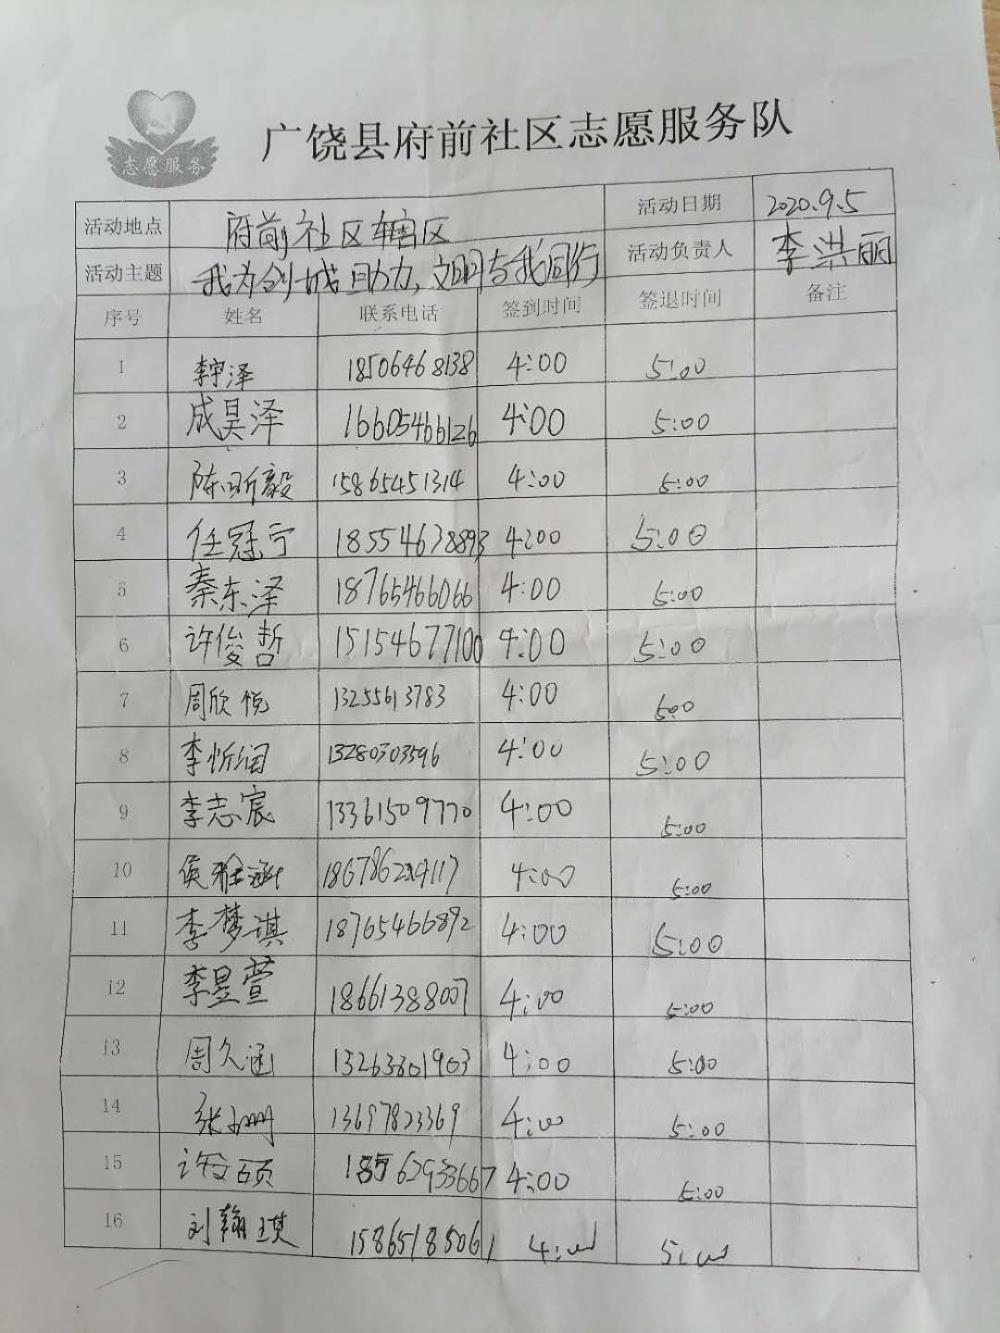 志愿服务
广饶县府前社区志愿服务队
活动地点 府前社区辖区 活动日期 2020.9.5
活动主题 我为创城助力,文明与我同行 活动负责人 李洪丽
序号 姓名 联系电话 签到时间 签退时间 备注
1 李宇泽 18506468138 4:00 5:00
2 成昊泽 16605466126 4:00 5:00
3 陈昕毅 15865451314 4:00 5:00
4 任冠宁 18554638893 4:00 5:00
5 秦东泽 18765466066 4:00 5:00
6 许俊哲 15154677100 4:00 5:00
7 周欣悦 13255613783 4:00 5:00
8 李忻润 13280303596 4:00 5:00
9 李志宸 13361509770 4:00 5:00
10 侯雅涵 4:00 5:00
11 李梦琪 18765466892 4:00 5:00
12 李昱萱 18661388007 4:00 5:00
13 周久涵 13263801903 4:00 5:00
14 张 13697823369 4:00 5:00
15 许文硕 4:00 5:00
16 刘翰琪 15865185061 4:00 5:00